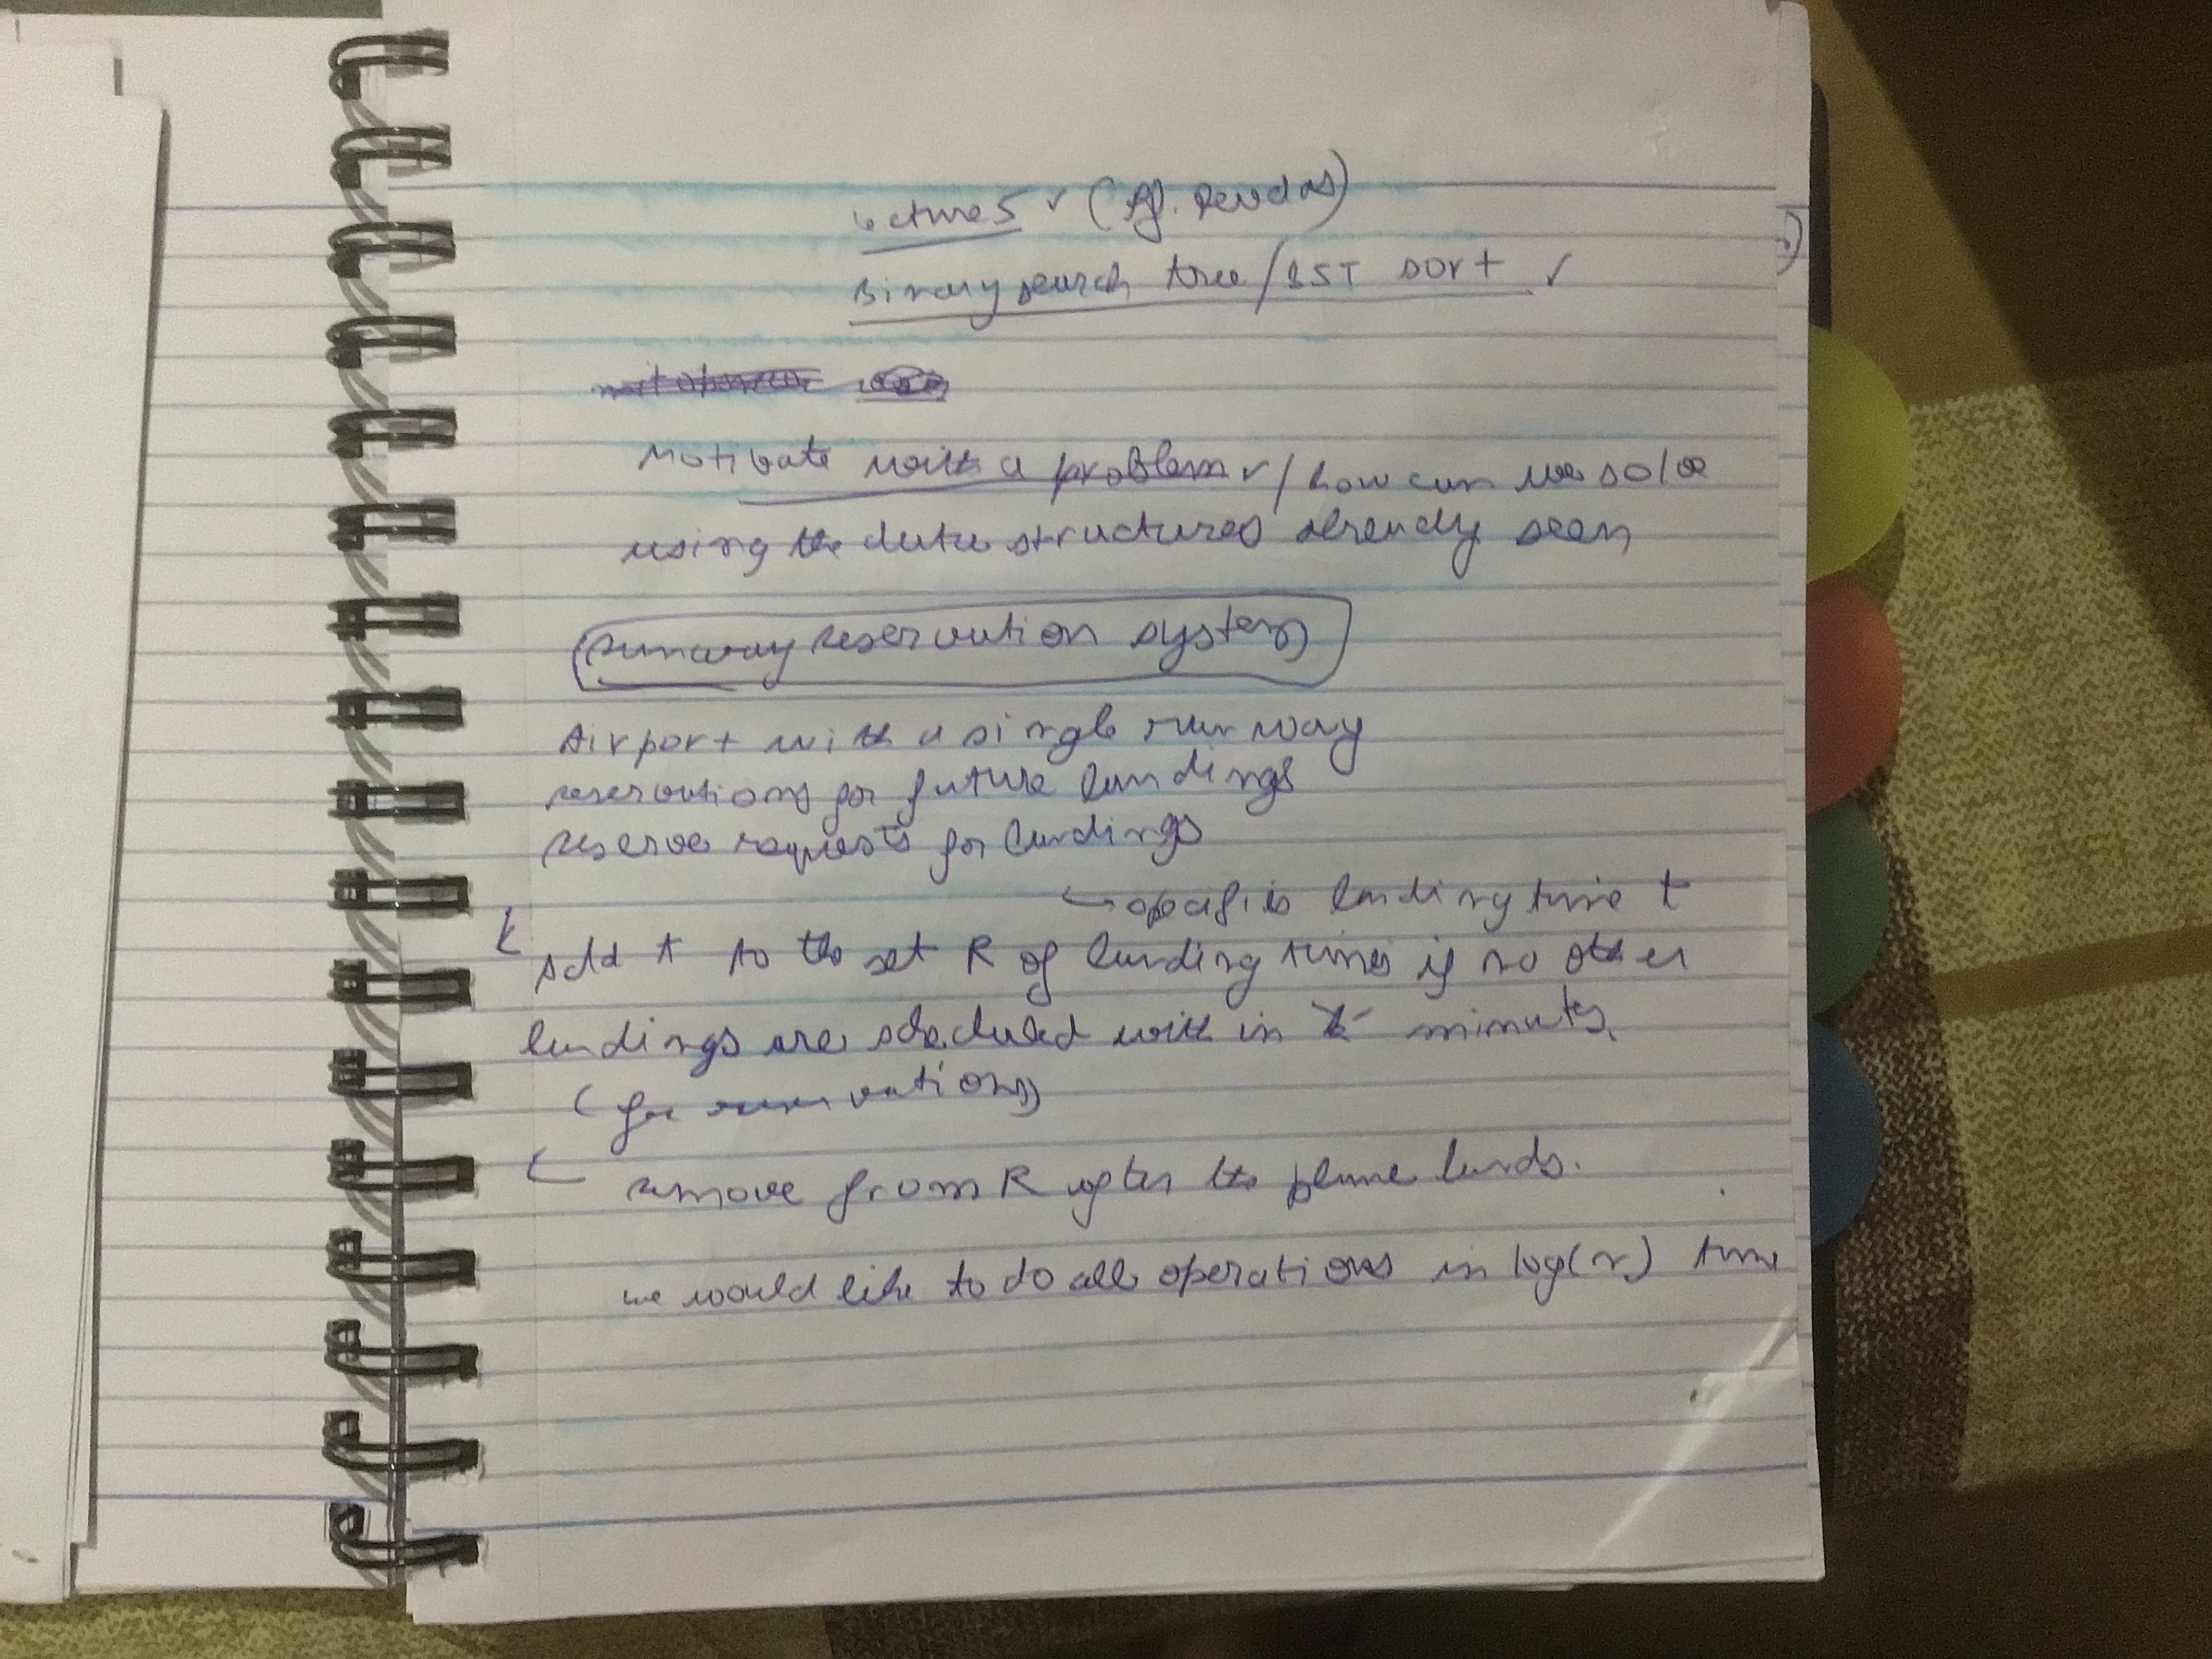 Lecture 5 ✓ (Pf. Devdas)
Binary search tree / BST sort ✓
Motivate with a problem ✓ / how can we solve
using the data structures already seen
runway reservation system
Airport with a single runway
reservations for future landings
reserve requests for landings
specifies landing time t
Add t to the set R of landing times if no other
landings are scheduled with in k minutes.
(for reservations)
remove from R after the plane lands.
we would like to do all operations in log(n) time